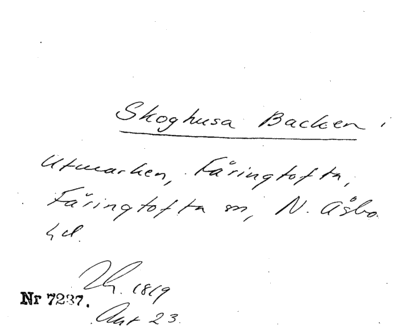 Skoghusa Backen i
utmarken, Fåringtofta,
Fåringtofta sn, N. Åsbo
hd.
Th. 1819
Nr 7237.
Akt 23.